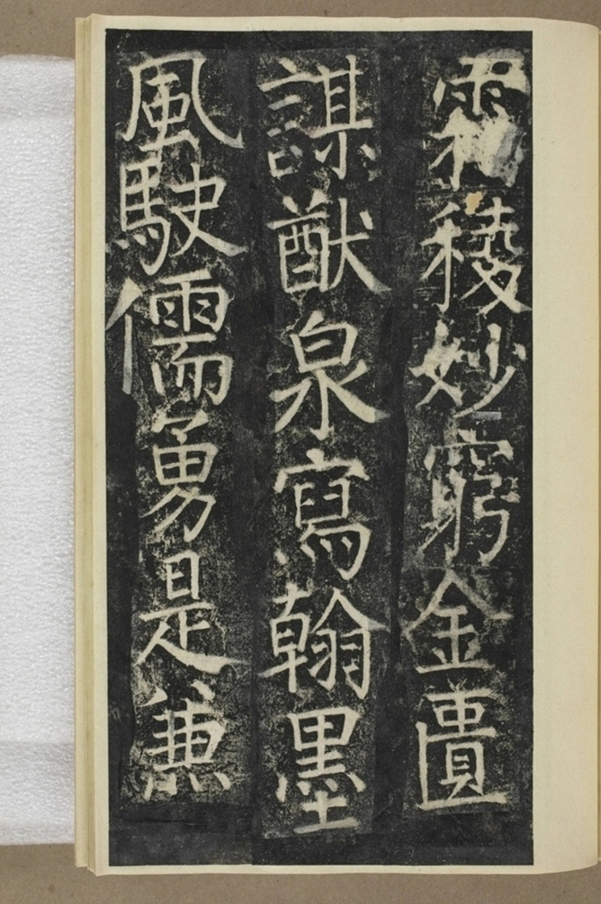 霜稜妙窮金匱
謀猷泉寫翰墨
風駛儒勇是兼